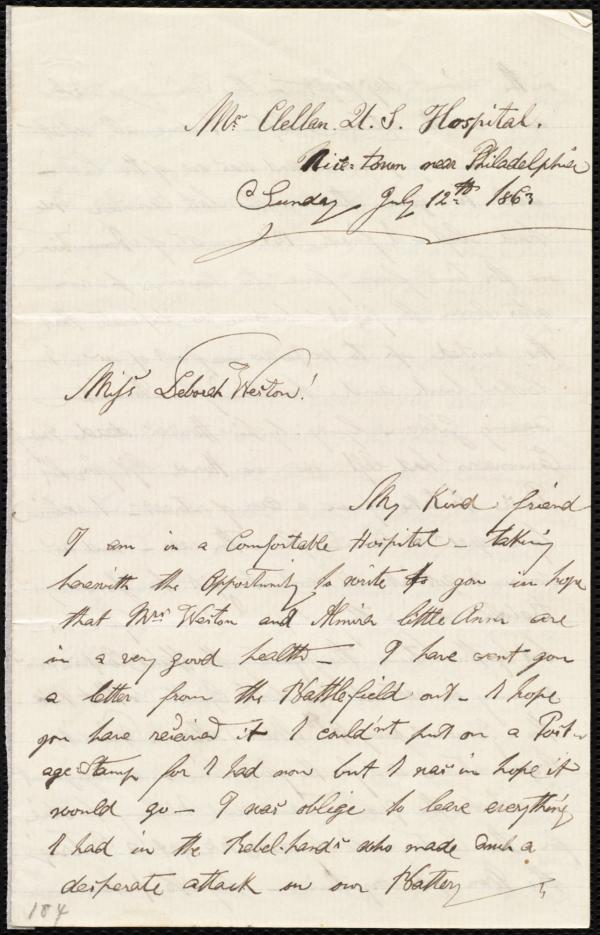 Mc Clellan. U. S. Hospital.
Nice-town near Philadelphia
Sunday July 12th 1863
Miss Deborah Weston!
My Kind friend
I am in a Comfortable Hospital - taking
herewith the Opportunity to write to you in hope
that Mrs Weston and Almira little Anna are
in a very good health - I have sent you
a letter from the Battlefield out - I hope
you have received it I could'nt put on a Post-
age Stamp for I had non but I was in hope it
would go - I was oblige to leave everything
I had in the Rebel-hands who made such a
desperate attack on our Battery
184